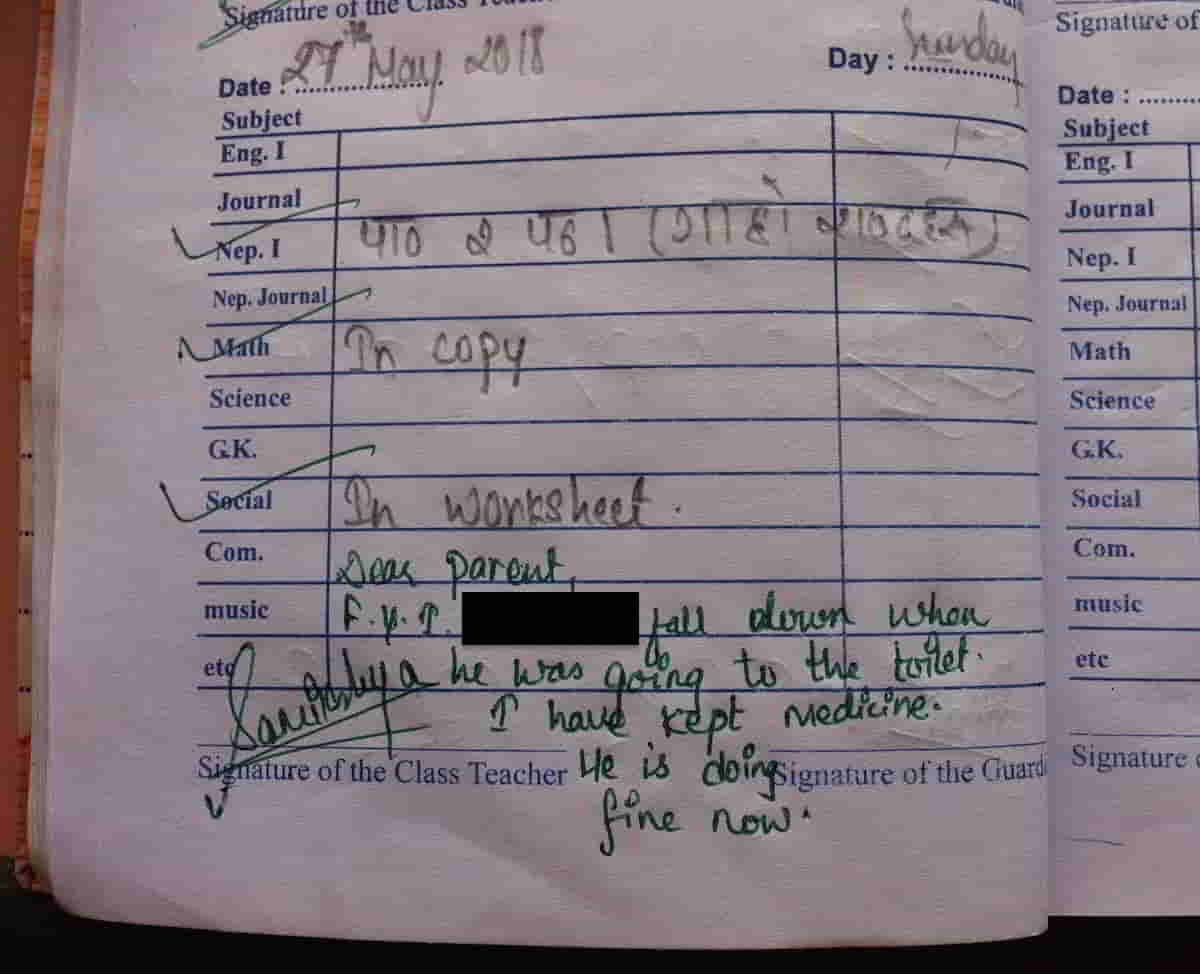 Signature of the Class
Signature of
27th May 2018
Sunday
Date :
Day :
Date :
Subject
Subject
Eng. I
Eng. I
Journal
Journal
Nep. I पाठ २ पढ । (गाह्रो
Nep. I
Nep. Journal
Nep. Journal
Math In copy
Math
Science
Science
G.K.
G.K.
Social In worksheet.
Social
Com. Dear parent,
Com.
music F.Y.I. fall down when
music
etc he was going to the toilet.
etc
I have kept medicine.
Signature of the Class Teacher He is doing Signature of the Guard
Signature
fine now.